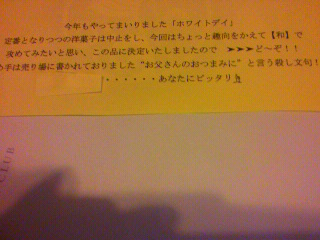 今年もやってまいりました『ホワイトデイ』
定番となりつつの洋菓子は中止をし、今回はちょっと趣向をかえて【和】で
攻めてみたいと思い、この品に決定いたしましたので ➤➤➤ど～ぞ！！
め手は売り場に書かれておりました“お父さんのおつまみに”と言う殺し文句！
・・・・・・あなたにピッタリ
CLUB